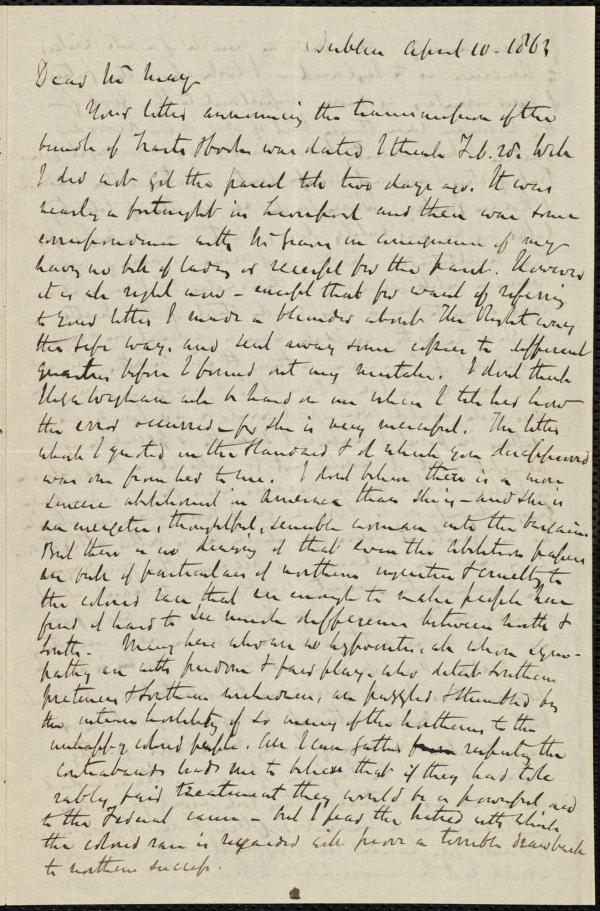 Dublin April 10 - 1863
Dear Mr May
Your letter announcing the transmission of the
bundle of Tracts & books was dated I think Feb. 20. Well
I did not get the parcel till two days ago. It was
nearly a fortnight in Liverpool and there was some
correspondence with Mr in consequence of my
having no bill of lading or receipt for the parcel. However
it is all right now - except that for want of referring
to your letter I made a blunder about The Right way
the Safe way, and sent away some copies to different
quarters before I found out my mistake. I don't think
Eliza Wigham will be hard on me when I tell her how
the error occurred - for she is very merciful. The letter
which I quoted in the Standard & of which you disapproved
was one from her to me. I don't believe there is a more
sincere abolitionist in America than she is - and she is
an energetic, thoughtful, sensible woman into the bargain.
But there is no denying of that even the Abolition papers
are full of particulars of northern injustice & cruelty to
the colored race that are enough to make people here
find it hard to see much difference between north &
South. Many here who are no hypocrites, all whose sym-
pathy are with freedom & fair play, who detest Southern
pretences & Southern wickedness, are puzzled & stumbled by
the intense hostility of so many of the northerns to the
unhappy colored people. All I can gather respecting the
contrabands leads me to believe that if they had tole
rably fair treatment they would be a powerful aid
to the Federal cause - but I fear the hatred with which
the colored race is regarded will prove a terrible drawback
to northern success.